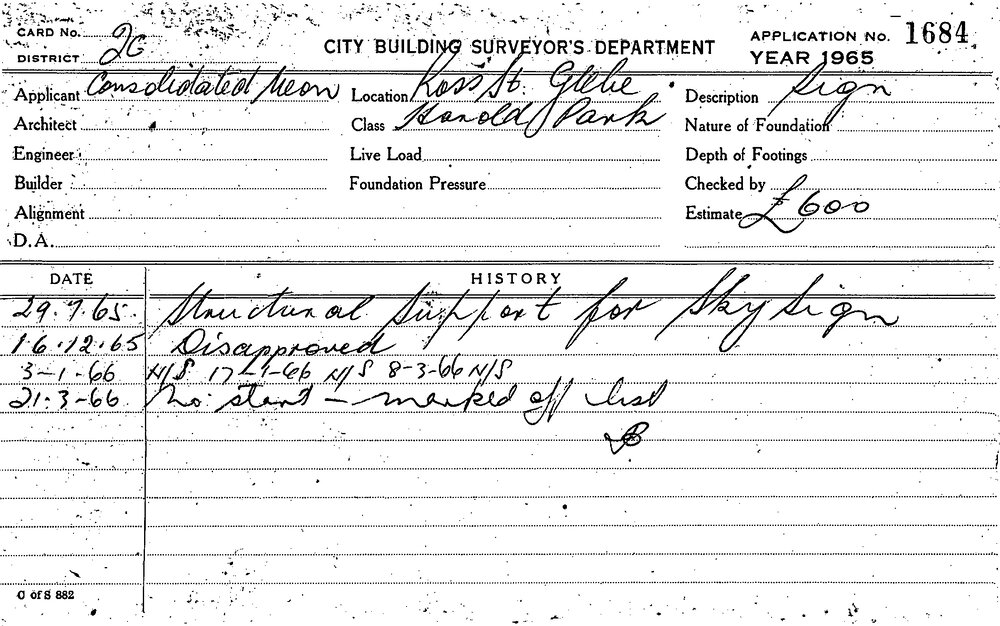 CARD No. 2G
DISTRICT
CITY BUILDING SURVEYOR'S DEPARTMENT
APPLICATION No. 1684
YEAR 1965
Applicant Consolidated Neon Location Ross St. Glebe Description Sign
Architect Class Harold Park Nature of Foundation
Engineer Live Load Depth of Footings
Builder Foundation Pressure Checked by
Alignment Estimate £600
D.A.
DATE HISTORY
29.7.65. Structural Support for Sky Sign
16.12.65 Disapproved
3-1-66 N/S 17-1-66 N/S 8-3-66 N/S
21-3-66 No start - marked off list
C of S 882